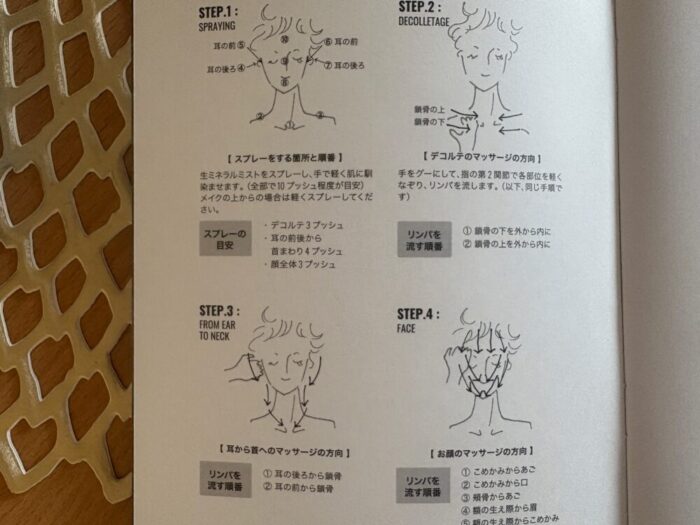 STEP.1 :
SPRAYING
⑩
耳の前⑤
⑥耳の前
⑨
耳の後ろ④
⑦耳の後ろ
⑧
②
③
【 スプレーをする箇所と順番 】
生ミネラルミストをスプレーし、手で軽く肌に馴
染ませます。（全部で10プッシュ程度が目安）
メイクの上からの場合は軽くスプレーしてくだ
さい。
スプレーの
目安
・デコルテ3プッシュ
・耳の前後から
首まわり4プッシュ
・顔全体3プッシュ
STEP.2 :
DECOLLETAGE
鎖骨の上
鎖骨の下
【 デコルテのマッサージの方向 】
手をグーにして、指の第2関節で各部位を軽く
なぞり、リンパを流します。（以下、同じ手順で
す）
リンパを
流す順番
① 鎖骨の下を外から内に
② 鎖骨の上を外から内に
STEP.3 :
FROM EAR
TO NECK
【 耳から首へのマッサージの方向 】
リンパを
流す順番
① 耳の後ろから鎖骨
② 耳の前から鎖骨
STEP.4 :
FACE
【 お顔のマッサージの方向 】
リンパを
流す順番
① こめかみからあご
② こめかみから口
③ 頬骨からあご
④ 額の生え際から眉
⑤ 額の生え際からこめかみ